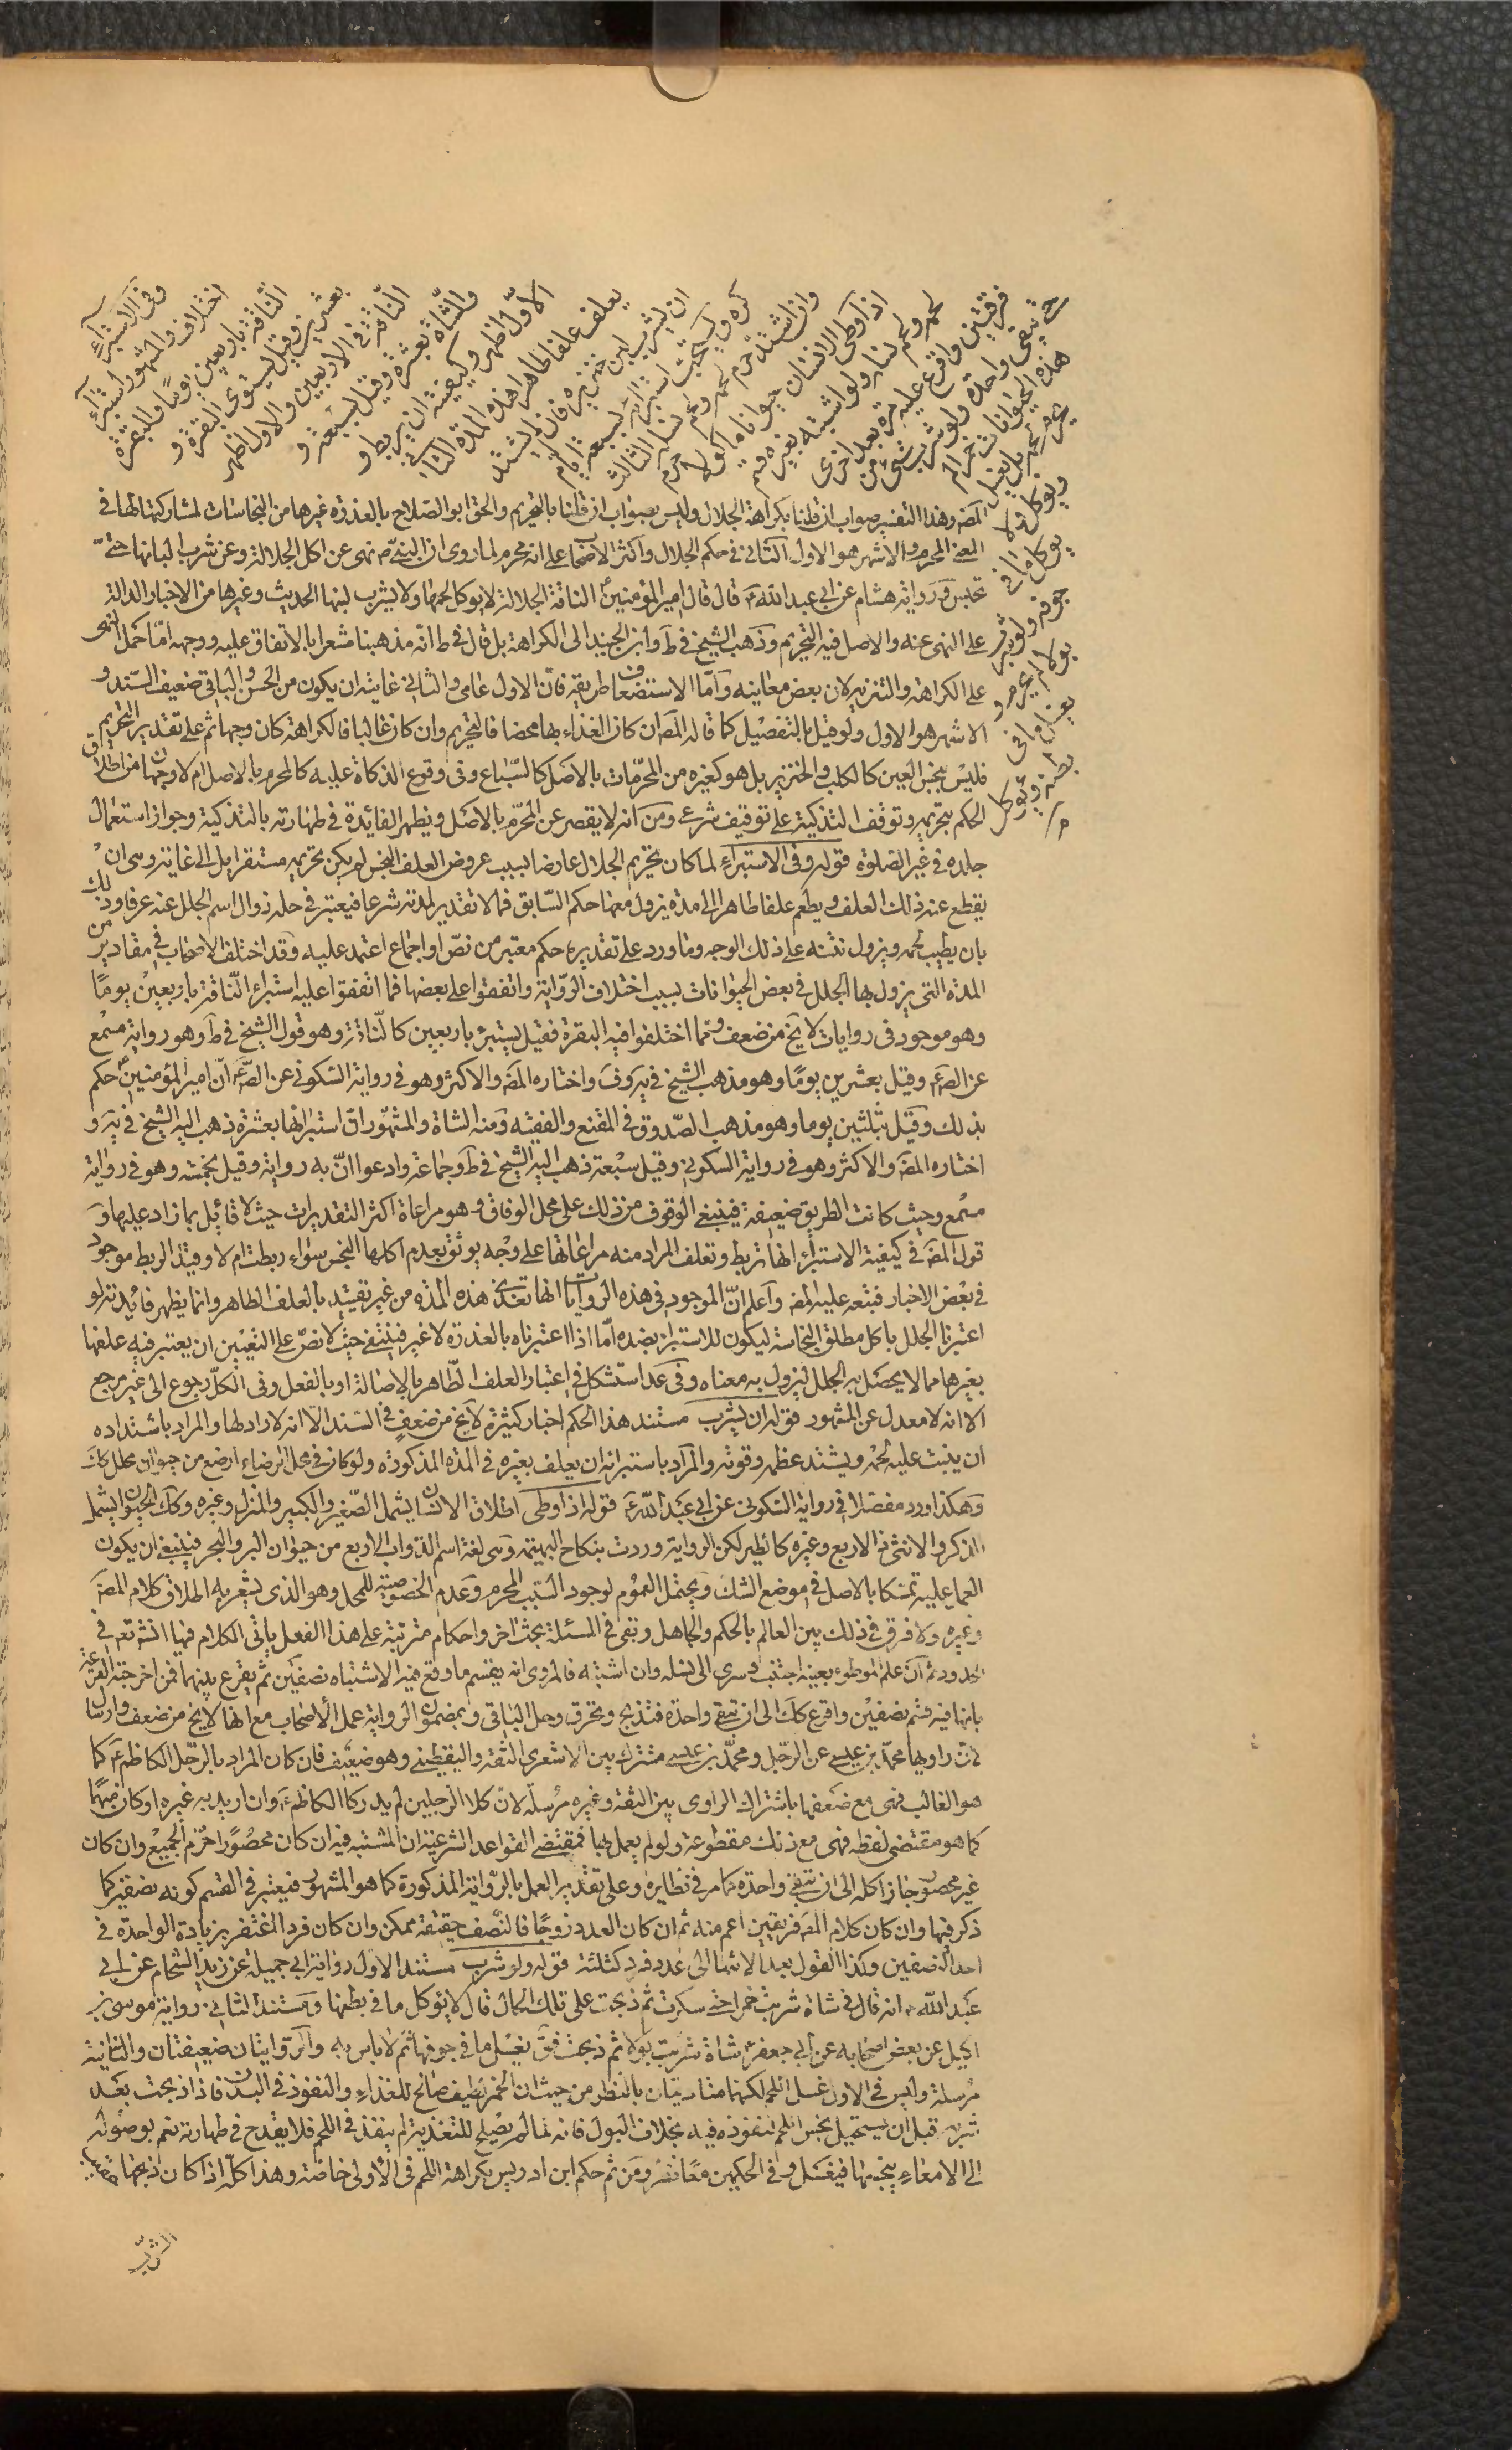 وفى الاستبراء
اختلاف والمشهور استبراء
الناقة باربعين يوما والبقرة
بعشرين وقيل يستوى البقرة و
الناقة فى الاربعين والاول اظهر
والشاة بعشرة وقيل بسبعة و
الاول اظهر وكيفيته ان يربط و
يعلف علفا طاهرا هذه المدة الثانى
ان يشرب لبن خنزيرة فان لم يشتد
كره ويستحب استبراؤه بسبعة ايام
وان اشتد حرم لحمه ولحم نسله الثالث
اذا وطى الانسان حيوانا ماكولا حرم
لحمه ولحم نسله ولو اشتبه بغيره قسم
فرقتين واقرع عليه مرة بعد اخرى
حتى تبقى واحدة ولو شرب شئ من
هذه الحيوانات خمرا لم
يحرم لحمه بل يغسل
ويؤكل ولا
يؤكل ما فى
جوفه ولو شرب
بولا لم يحرم و
يغسل ما فى
بطنه ويؤكل
المصنف وهذا التفسير صواب ان قلنا بكراهة الجلال وليس بصواب ان قلنا بالتحريم والحق ابو الصلاح بالعذرة غيرها من النجاسات لمشاركتها لها فى
المعنى المحرم والاشهر هو الاول الثانى فى حكم الجلال واكثر الاصحاب على انه محرم لما روى ان النبى ص نهى عن اكل الجلالة وعن شرب البانها حتى
تحبس وروايه هشام عن ابى عبد الله ع قال قال امير المؤمنين ع الناقة الجلالة لا يؤكل لحمها ولا يشرب لبنها الحديث وغيرها من الاخبار الدالة
على النهى عنه والاصل فيه التحريم وذهب الشيخ فى ط وابن الجنيد الى الكراهة بل قال فى ط انه مذهبنا مشعرا بالاتفاق عليه ووجهه اما حمل النهى
على الكراهة والتنزيه لان بعض معانيه واما الاستضعاف طريقه فان الاول عامى والثانى غايته ان يكون من الحسن والباقى ضعيف السند و
الاشهر هو الاول ولو قيل بالتفصيل كما قاله المصنف ان كان الغذاء بها محضا فالتحريم وان كان غالبا فالكراهة كان وجها ثم على تقدير التحريم
فليس بنجس العين كالكلب والخنزير بل هو كغيره من المحرمات بالاصل كالسباع وفى وقوع الذكاة عليه كالمحرم بالاصل ام لا وجهان من اطلاق
الحكم بتحريمه وتوقف التذكية على توقيف شرعى ومن انه لا يقصر عن المحرم بالاصل ويظهر الفائدة فى طهارته بالتذكية وجواز استعمال
جلده فى غير الصلوة قوله وفى الاستبراء لما كان تحريم الجلال عارضا بسبب عروض العلف النجس لم يكن تحريمه مستقرا بل الى غاية وهى ان
يقطع عنه ذلك العلف ويطعم علفا طاهرا الى مدة يزول معها حكم السابق فما لا تقدير لمدته شرعا فيعتبر فى حله زوال اسم الجلل عنه عرفا وذلك
بان يطيب لحمه ويزول نتنه على ذلك الوجه وما ورد على تقديره حكم معتبر من نص او اجماع اعتمد عليه وقد اختلف الاصحاب فى مقادير من
المدة التى يزول بها الجلل فى بعض الحيوانات بسبب اختلاف الرواية واتفقوا على بعضها فما اتفقوا عليه استبراء الناقة باربعين يوما
وهو موجود فى روايات لا يخ من ضعف ومما اختلفوا فيه البقرة فقيل يستبرئ باربعين كالناقة وهو قول الشيخ فى ط وهو رواية مسمع
عن الصع وقيل بعشرين يوما وهو مذهب الشيخ فى يه وف واختاره المصنف والاكثر وهو فى رواية السكونى عن الصع ان امير المؤمنين ع حكم
بذلك وقيل بثلثين يوما وهو مذهب الصدوق فى المقنع والفقيه ومنه الشاة والمشهور ان استبرائها بعشرة ذهب اليه الشيخ فى يه و
اختاره المصنف والاكثر وهو فى رواية السكونى وقيل سبعة ذهب اليه الشيخ فى ط وجماعة وادعوا ان به رواية وقيل بخمسة وهو فى رواية
مسمع وحيث كانت الطريق ضعيفة فينبغى الوقوف من ذلك على محل الوفاق وهو مراعاة اكثر التقديرات حيث لا قائل بما زاد عليها و
قول المصنف فى كيفية الاستبراء انها تربط وتعلف المراد منه مراعاتها على وجه يوثق بعدم اكلها النجس سواء ربطت ام لا وقيد الربط موجود
فى بعض الاخبار فتبعه عليه المصنف واعلم ان الموجود فى هذه الروايات انها تغذى هذه المدة من غير تقييد بالعلف الطاهر وانما يظهر فائدته لو
اعتبرنا الجلل باكل مطلق النجاسة ليكون للاستبراء بضده اما اذا اعتبرناه بالعذرة لا غير فينتفى حيث لا نص على التعيين ان يعتبر فيه علفها
بغيرها مما لا يحصل به الجلل ليزول به معناه وفى عد استشكل فى اعتبار العلف الطاهر بالاصالة او بالفعل وفى الكل رجوع الى غير مرجع
الا انه لا معدل عن المشهور قوله ان يشرب مستند هذا الحكم اخبار كثيرة لا يخ من ضعف فى السند الا انه لا راد لها والمراد باشتداده
ان ينبت عليه لحمه ويشتد عظمه وقوته والمراد باستبرائه ان يعلف بغيره فى المدة المذكورة ولو كان فى محل الرضاع ارضع من حيوان محلل كك
وهكذا ورد مفصلا فى رواية السكونى عن ابى عبد الله ع قوله اذا وطى اطلاق الانسان يشمل الصغير والكبير والمنزل وغيره وكك الحيوان يشمل
الذكر والانثى ذا الاربع وغيره كالطير لكن الرواية وردت بنكاح البهيمة وهى لغة اسم لذوات الاربع من حيوان البر والبحر فينبغى ان يكون
العمل عليه تمسكا بالاصل فى موضع الشك ويحتمل العموم لوجود السبب المحرم وعدم الخصوصية للمحل وهو الذى يشعر به اطلاق كلام المصنف
وغيره ولا فرق فى ذلك بين العالم بالحكم والجاهل وبقى فى المسئلة بحث اخر واحكام مترتبة على هذا الفعل ياتى الكلام فيها انش تعه فى
الحدود ثم ان علم الموطوء بعينه اجتنب وسرى الى نسله وان اشتبه فالمروى انه يقسم ما وقع فيه الاشتباه نصفين ثم يقرع بينهما فمن اخرجته القرعة
بانها فيه قسم نصفين واقرع كك الى ان تبقى واحدة فتذبح وتحرق وحل الباقى وبمضمون الرواية عمل الاصحاب مع انها لا يخ من ضعف وارسال
لان راويها محمد بن عيسى عن الرجل ومحمد بن عيسى مشترك بين الاشعرى الثقة واليقطينى وهو ضعيف فان كان المراد بالرجل الكاظم ع كما
هو الغالب فهى مع ضعفها باشتراك الراوى بين الثقة وغيره مرسلة لان كلا الرجلين لم يدركا الكاظم ع وان اريد به غيره او كان مبهما
كما هو مقتضى لفظه فهى مع ذلك مقطوعة ولو لم يعمل بها فمقتضى القواعد الشرعية ان المشتبه فيه ان كان محصورا حرم الجميع وان كان
غير محصور جاز اكله الى ان تبقى واحدة كما مر فى نظايره وعلى تقدير العمل بالرواية المذكورة كما هو المشهور فيعتبر فى القسم كونه نصفين كما
ذكر فيها وان كان كلام المصنف فريقين اعم منه ثم ان كان العدد زوجا فالنصف حقيقة ممكن وان كان فردا اغتفر زيادة الواحدة فى
احد النصفين وكذا القول بعد الانتهاء الى عدد فرد كثلثة قوله ولو شرب مستند الاول رواية ابى جميلة عن زيد الشحام عن ابى
عبد الله ع انه قال فى شاة شربت خمرا حتى سكرت ثم ذبحت على تلك الحال قال لا يؤكل ما فى بطنها ومستند الثانى رواية موسى بن
اكيل عن بعض اصحابه عن ابى جعفر ع شاة شربت بولا ثم ذبحت فق يغسل ما فى جوفها ثم لا باس به والروايتان ضعيفتان والثانية
مرسلة وليس فى الاول غسل اللحم لكنهما متقاربتان بالنظر من حيث ان الخمر لطيف صالح للغذاء والنفوذ فى البدن فاذا ذبحت بعد
شربه قبل ان يستحيل نجس اللحم لنفوذه فيه بخلاف البول فانه لما لم يصلح للتغذية لم ينفذ فى اللحم فلا يقدح فى طهارته نعم بوصوله
الى الامعاء ينجسها فيغسل وفى الحكمين معا نظر ومن ثم حكم ابن ادريس بكراهة اللحم فى الاولى خاصة وهذا كله اذا كان ذبحها عقيب
الشرب